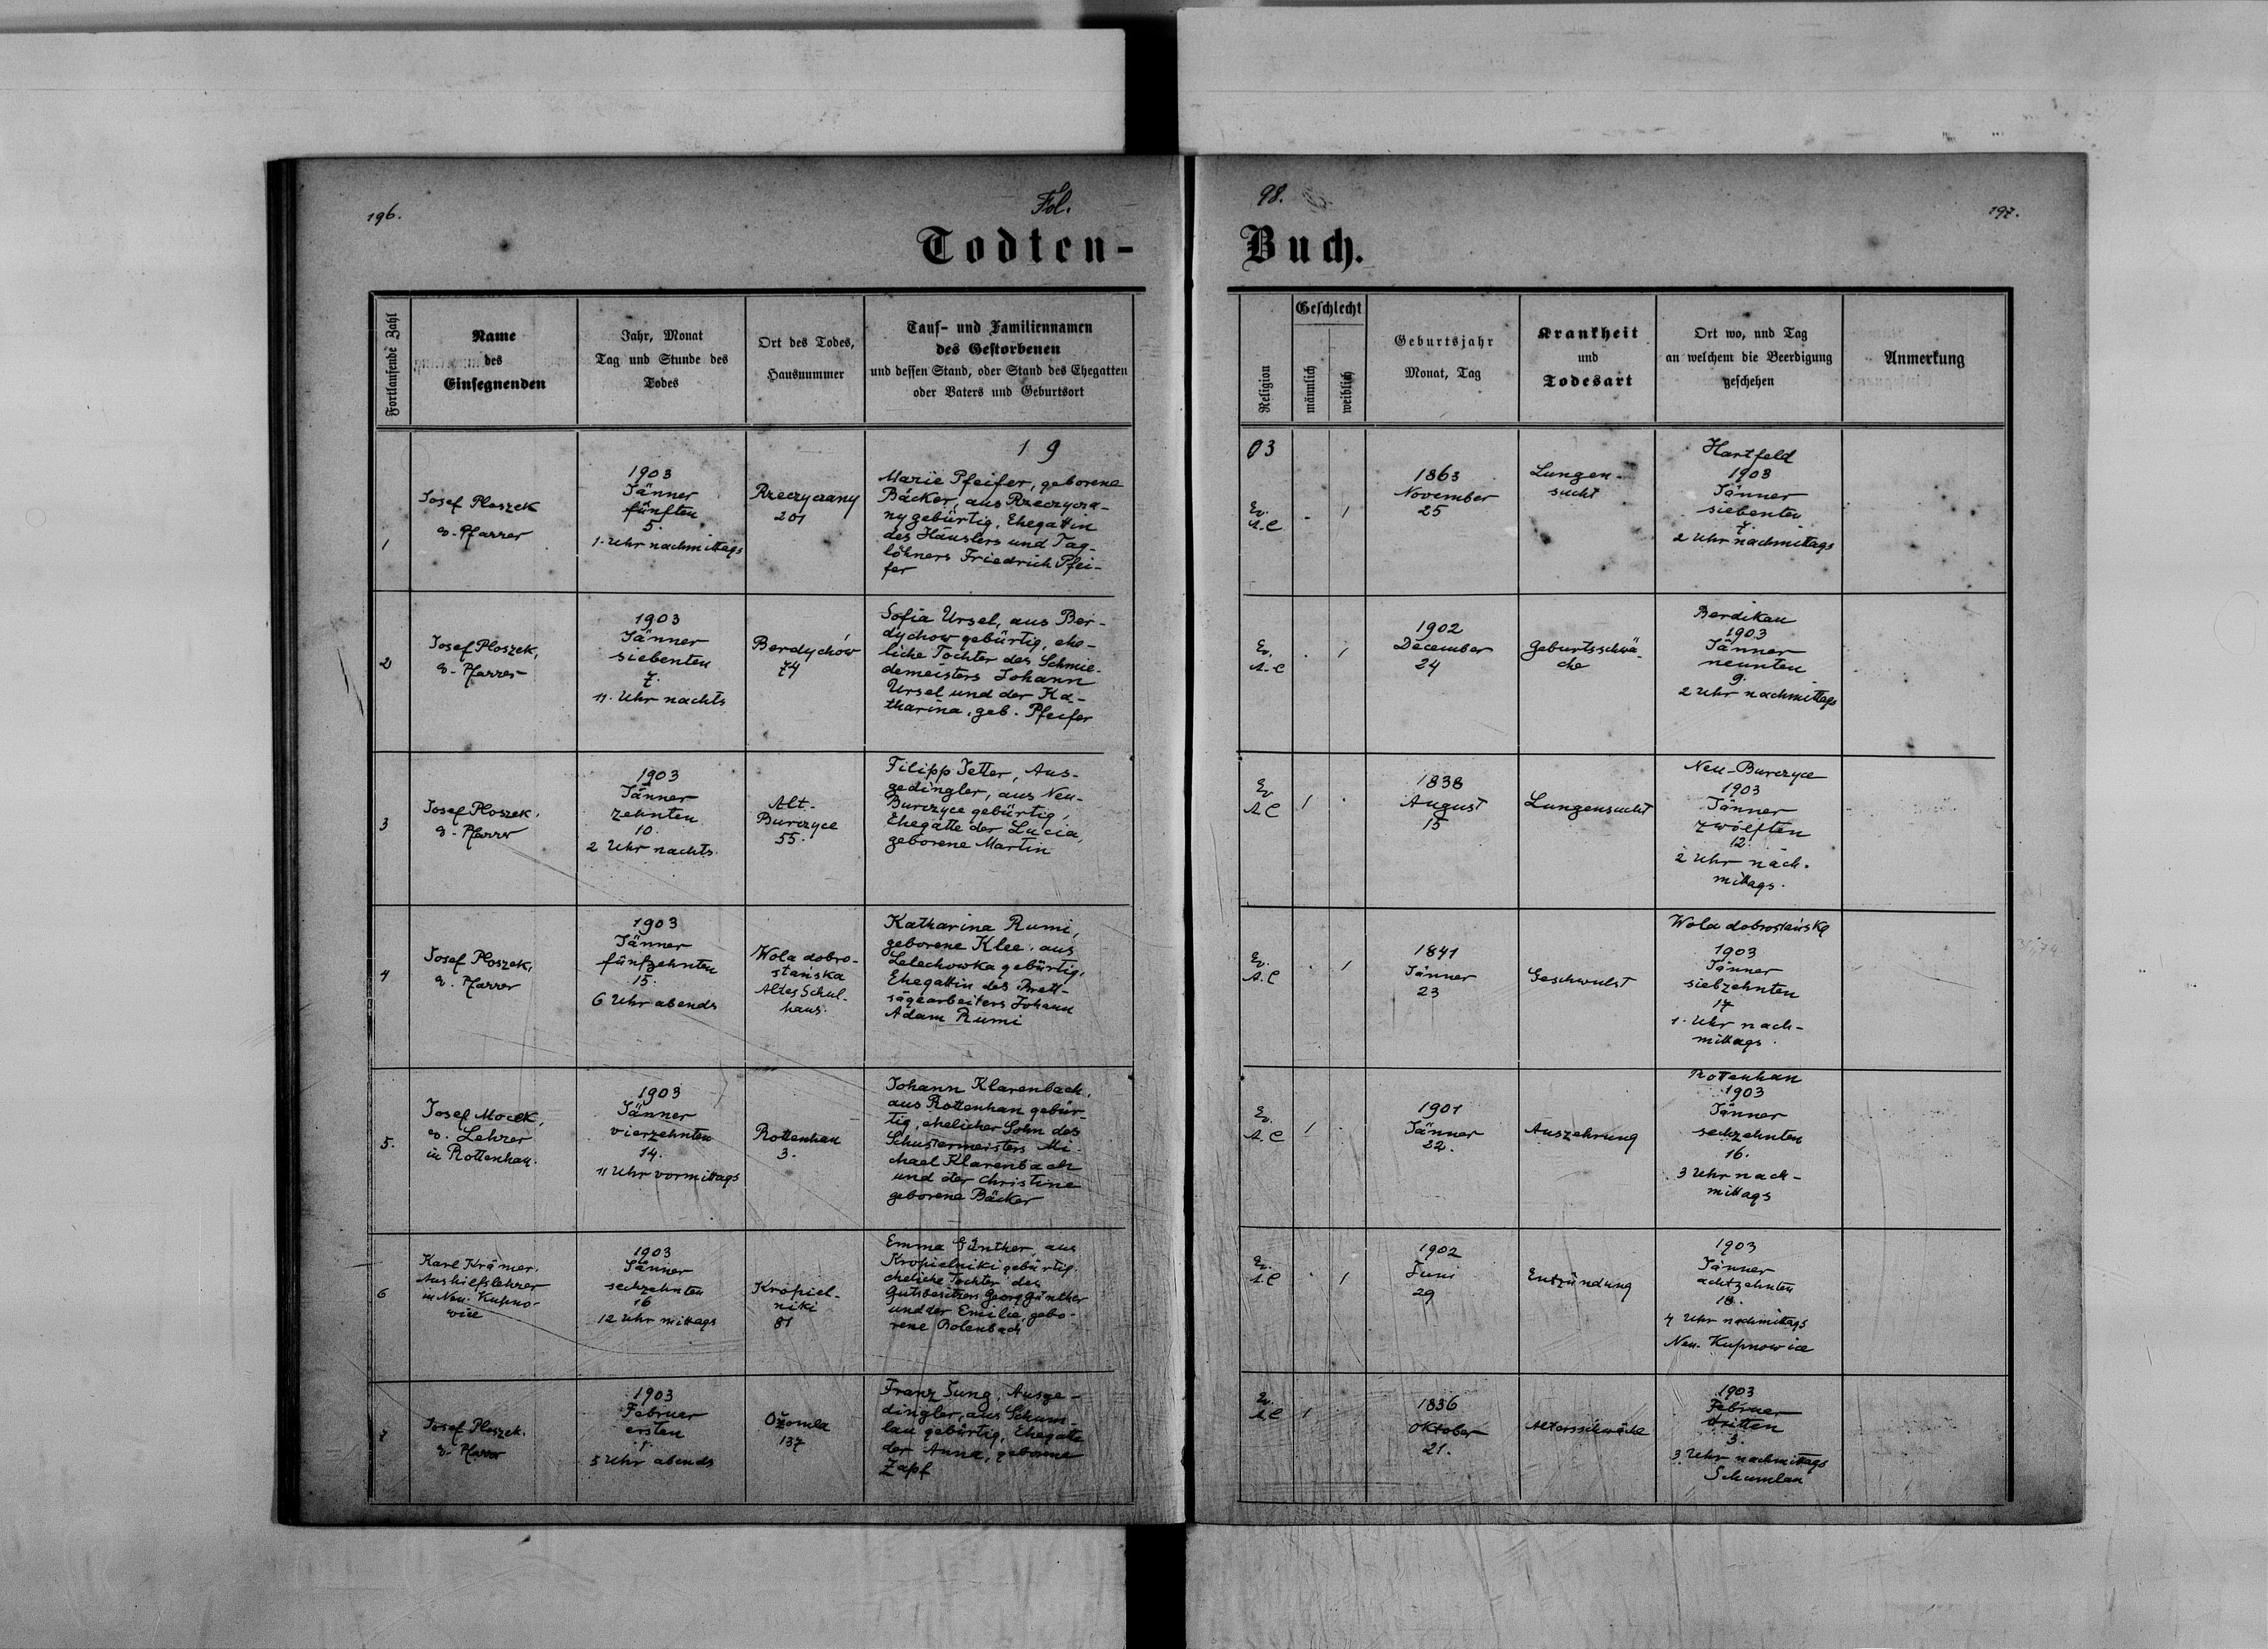 196.
Fol.
98.
197.
Todten-
Buch.
Fortlaufende Zahl
Name
des
Einsegnenden
Jahr, Monat
Tag und Stunde des
Todes
Ort des Todes,
Hausnummer
Tauf- und Familiennamen
des Gestorbenen
und dessen Stand, oder Stand des Ehegatten
oder Vaters und Geburtsort
Religion
Geschlecht
männlich
weiblich
Geburtsjahr
Monat, Tag
Krankheit
und
Todesart
Ort wo, und Tag
an welchem die Beerdigung
geschehen
Anmerkung
19
03
1
Josef Ploszek
ev. Pfarrer
1903
Jänner
fünften
5.
1. Uhr nachmittags
Rzeczyczany
201
Marie Pfeifer, geborene
Bäcker, aus Rzeczycza-
ny gebürtig, Ehegattin
des Häuslers und Tag-
löhners Friedrich Pfei-
fer
Ev.
A.C
1
1863
November
25
Lungen-
sucht
Hartfeld
1903
Jänner
siebenten
7.
2 Uhr nachmittags
2
Josef Ploszek,
ev. Pfarrer
1903
Jänner
siebenten
7.
11. Uhr nachts
Berdychów
74
Sofia Ursel, aus Ber-
dychow gebürtig, ehe-
liche Tochter des Schmie-
demeisters Johann
Ursel und der Ka-
tharina, geb. Pfeifer
Ev.
A.C
1
1902
December
24
Geburtsschwä-
che
Berdikau
1903
Jänner
neunten
9.
2 Uhr nachmittags
3
Josef Ploszek,
ev. Pfarrer
1903
Jänner
zehnten
10.
2 Uhr nachts
Alt-
Burczyce
55.
Filipp Jetter, Aus-
gedingler, aus Neu-
Burczyce gebürtig,
Ehegatte der Lucia,
geborene Martin
Ev
A.C
1
1838
August
15
Lungensucht
Neu-Burczyce
1903
Jänner
zwölften
12.
2 Uhr nach-
mittags.
4
Josef Ploszek,
ev. Pfarrer
1903
Jänner
fünfzehnten
15.
6 Uhr abends
Wola dobro-
stańska
Altes Schul-
haus.
Katharina Rumi,
geborene Klee, aus
Lelechowka gebürtig,
Ehegattin des Brett-
sägearbeiters Johann
Adam Rumi
Ev.
A.C
1
1841
Jänner
23
Geschwulst
Wola dobrostańska
1903
Jänner
siebzehnten
17
1. Uhr nach-
mittags.
5.
Josef Mocek,
ev. Lehrer
in Rottenhan.
1903
Jänner
vierzehnten
14.
11 Uhr vormittags
Rottenhan
3.
Johann Klarenbach,
aus Rottenhan gebür-
tig, ehelicher Sohn des
Schustermeisters Mi-
chael Klarenbach
und der Christine
geborene Bäcker
Ev.
A.C
1
1901
Jänner
22.
Auszehrung
Rottenhan
1903
Jänner
sechzehnten
16.
3 Uhr nach-
mittags
6
Karl Krämer,
Aushilfslehrer
in Neu-Kupno-
wice
1903
Jänner
sechzehnten
16
12 Uhr mittags
Kropiel-
niki
81
Emma Günther, aus
Kropielniki gebürtig,
eheliche Tochter des
Gutsbesitzers Georg Günther
und der Emilie, gebo-
rene Bolenbach
Ev.
A.C
1
1902
Juni
29
Entzündung
1903
Jänner
achtzehnten
18.
4 Uhr nachmittags
Neu-Kupnowice
7
Josef Ploszek.
ev. Pfarrer
1903
Februer
ersten
1.
5 Uhr abends
Ożomla
137
Franz Jung, Ausge-
dingler, aus Schum-
lau gebürtig, Ehegatte
der Anna, geborene
Zapf
Ev.
A.C
1
1836
Oktober
21.
Altersschwäche
1903
Februer
dritten
3.
3 Uhr nachmittags
Schumlau